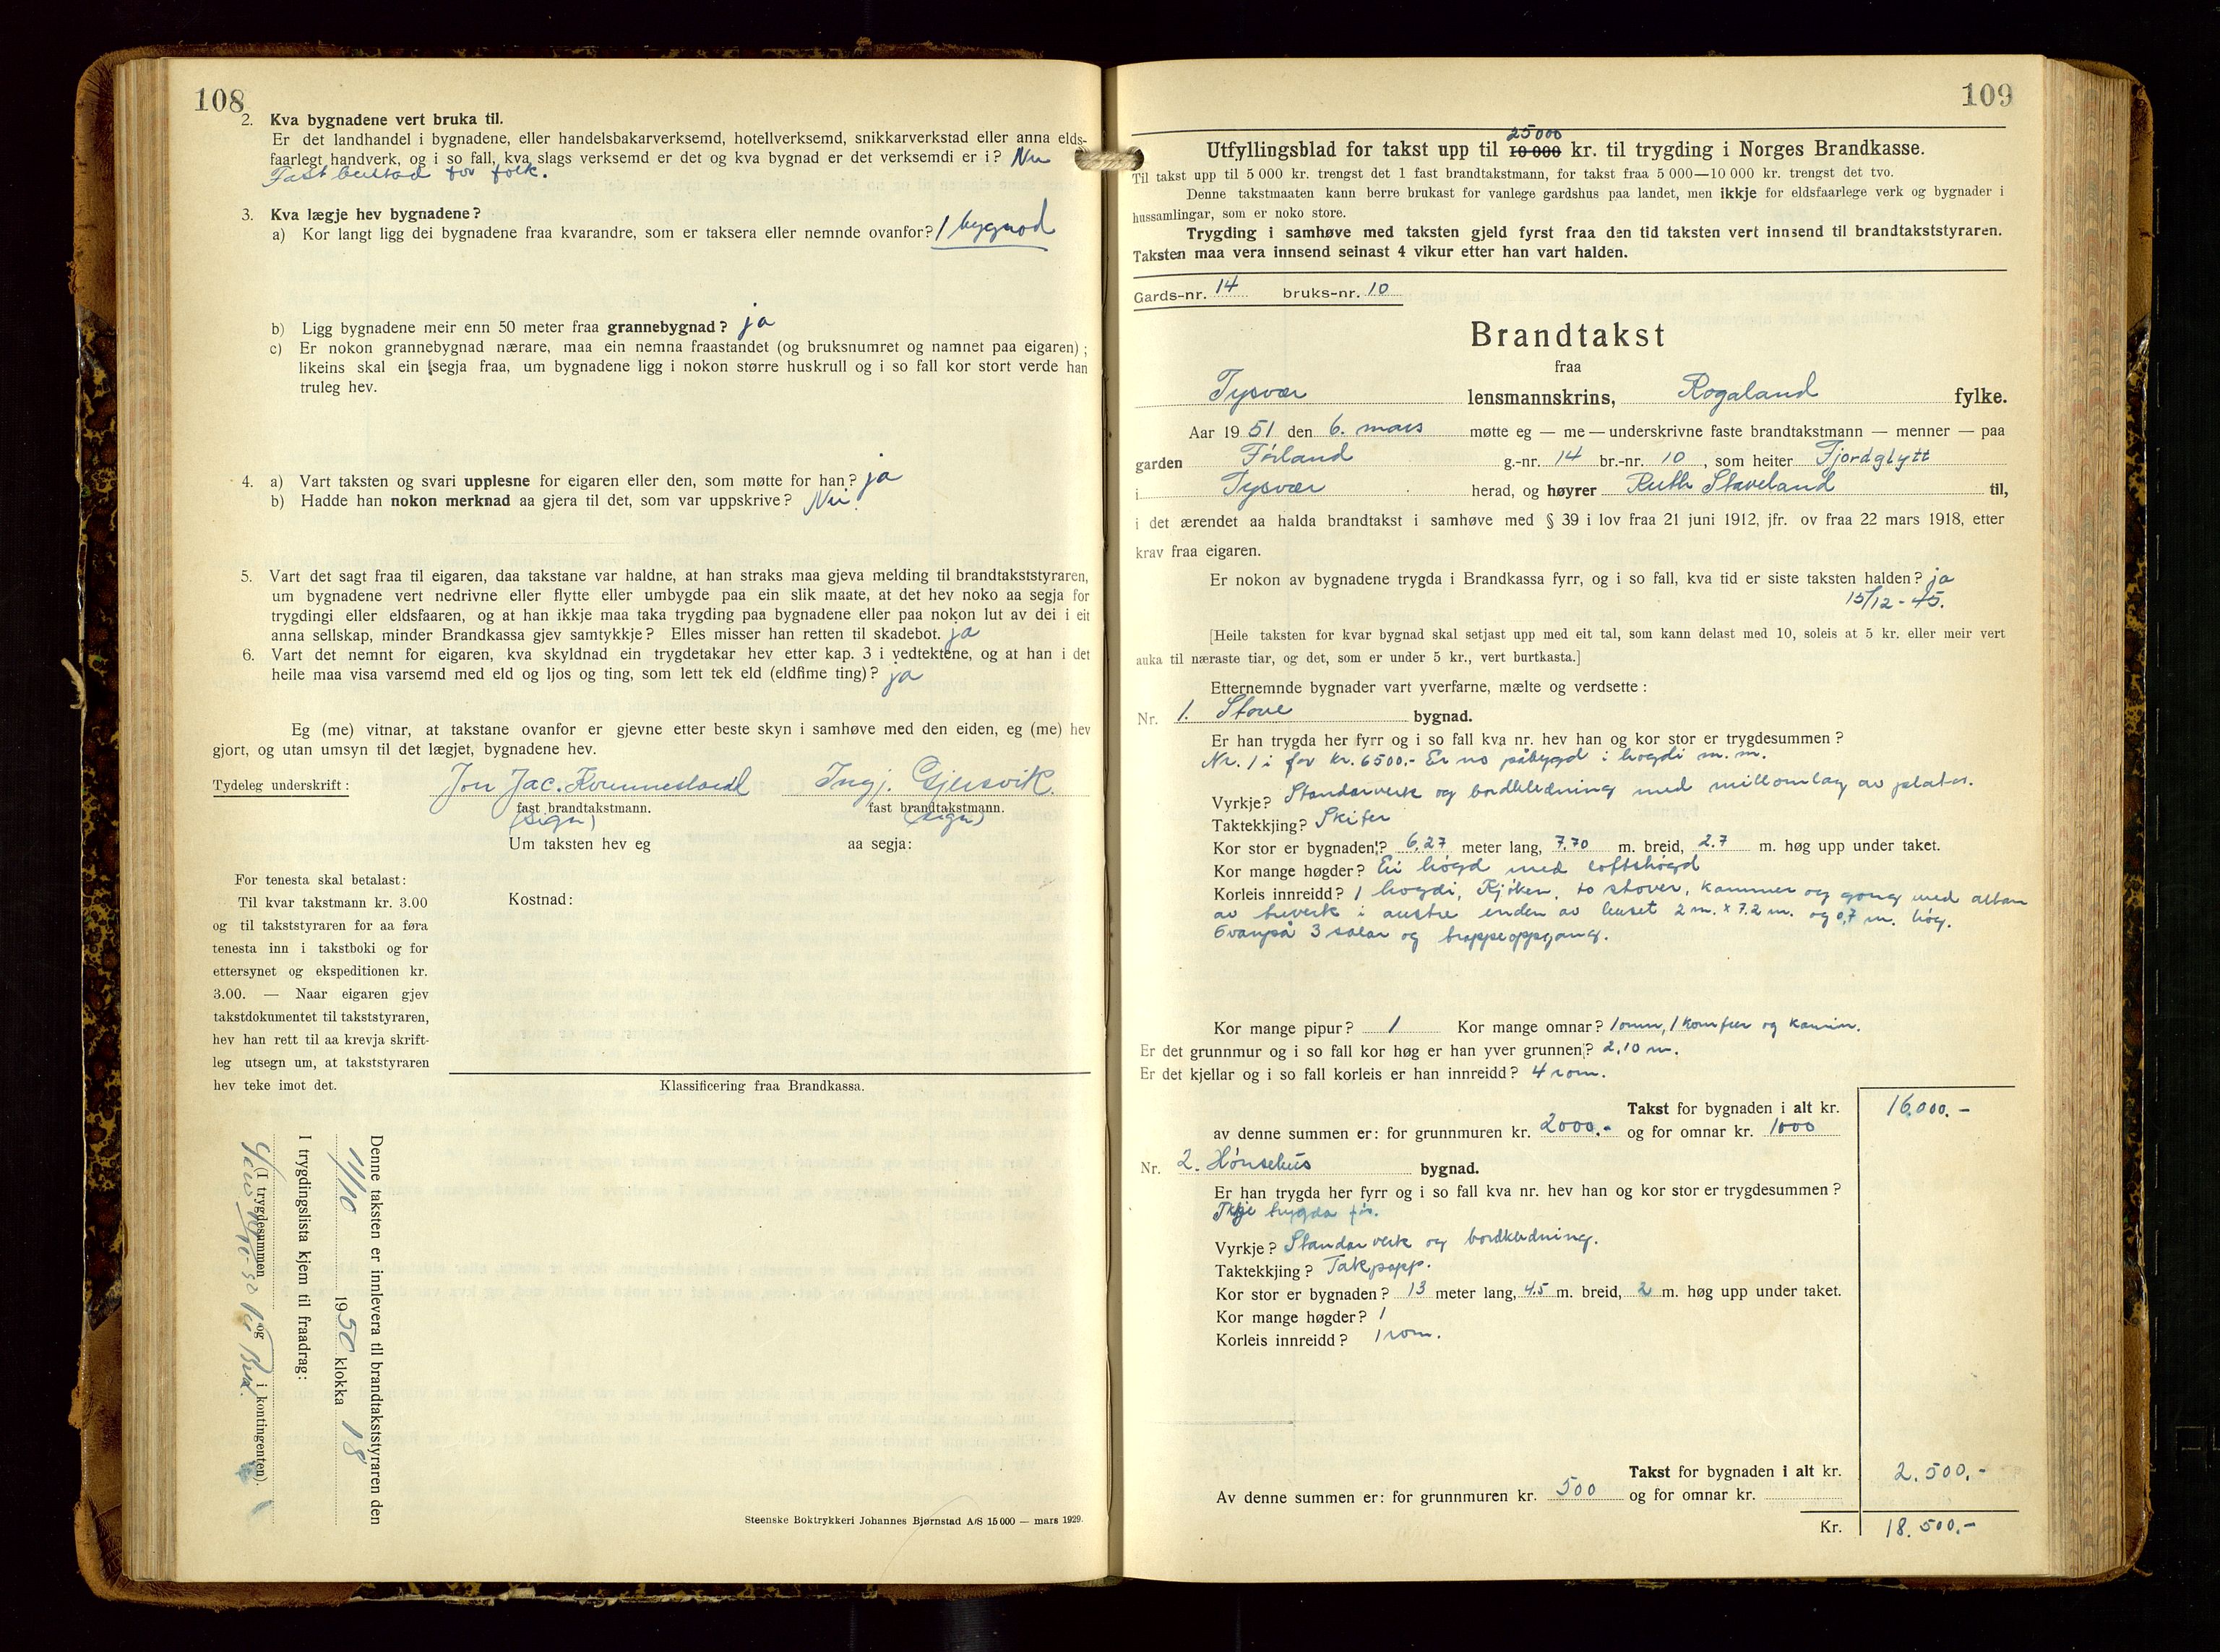 108
2. Kva bygnadene vert bruka til.
Er det landhandel i bygnadene, eller handelsbakarverksemd, hotellverksemd, snikkarverkstad eller anna elds-
faarlegt handverk, og i so fall, kva slags verksemd er det og kva bygnad er det verksemdi er i? Nei
Fast bustad for folk.
3. Kva lægje hev bygnadene?
a) Kor langt ligg dei bygnadene fraa kvarandre, som er taksera eller nemnde ovanfor? 1 bygnad
b) Ligg bygnadene meir enn 50 meter fraa grannebygnad? ja
c) Er nokon grannebygnad nærare, maa ein nemna fraastandet (og bruksnumret og namnet paa eigaren);
likeins skal ein segja fraa, um bygnadene ligg i nokon større huskrull og i so fall kor stort verde han
truleg hev.
4. a) Vart taksten og svari upplesne for eigaren eller den, som møtte for han? ja
b) Hadde han nokon merknad aa gjera til det, som var uppskrive? Nei.
5. Vart det sagt fraa til eigaren, daa takstane var haldne, at han straks maa gjeva melding til brandtakststyraren,
um bygnadene vert nedrivne eller flytte eller umbygde paa ein slik maate, at det hev noko aa segja for
trygdingi eller eldsfaaren, og at han ikkje maa taka trygding paa bygnadene eller paa nokon lut av dei i eit
anna sellskap, minder Brandkassa gjev samtykkje? Elles misser han retten til skadebot. ja
6. Vart det nemnt for eigaren, kva skyldnad ein trygdetakar hev etter kap. 3 i vedtektene, og at han i det
heile maa visa varsemd med eld og ljos og ting, som lett tek eld (eldfime ting)? ja
Eg (me) vitnar, at takstane ovanfor er gjevne etter beste skyn i samhøve med den eiden, eg (me) hev
gjort, og utan umsyn til det lægjet, bygnadene hev.
Tydeleg underskrift: Jon Jac. Kvinnesland Ingj. Gjersvik.
fast brandtakstmann. fast brandtakstmann.
(sign) (sign)
Um taksten hev eg aa segja:
For tenesta skal betalast:
Til kvar takstmann kr. 3.00
og til takststyraren for aa føra
tenesta inn i takstboki og for
ettersynet og ekspeditionen kr.
3.00. — Naar eigaren gjev
takstdokumentet til takststyraren,
hev han rett til aa krevja skrift-
leg utsegn um, at takststyraren
hev teke imot det.
Kostnad:
Klassificering fraa Brandkassa.
Denne taksten er innlevera til brandtakststyraren den
11/10 1950 klokka 18
I trygdingslista kjem til fraadrag:
(I trygdesummen og i kontingenten).
Steenske Boktrykkeri Johannes Bjørnstad A/S 15 000 — mars 1929.
109
25000
Utfyllingsblad for takst upp til 10 000 kr. til trygding i Norges Brandkasse.
Til takst upp til 5 000 kr. trengst det 1 fast brandtakstmann, for takst fraa 5 000—10 000 kr. trengst det tvo.
Denne takstmaaten kann berre brukast for vanlege gardshus paa landet, men ikkje for eldsfaarlege verk og bygnader i
hussamlingar, som er noko store.
Trygding i samhøve med taksten gjeld fyrst fraa den tid taksten vert innsend til brandtakststyraren.
Taksten maa vera innsend seinast 4 vikur etter han vart halden.
Gards-nr. 14 bruks-nr. 10
Brandtakst
fraa
Tysvær lensmannskrins, Rogaland fylke.
Aar 1951 den 6. mars møtte eg — me — underskrivne faste brandtakstmann — menner — paa
garden Førland g.-nr. 14 br.-nr. 10, som heiter Fjordglytt
i Tysvær herad, og høyrer Ruth Staveland til,
i det ærendet aa halda brandtakst i samhøve med § 39 i lov fraa 21 juni 1912, jfr. ov fraa 22 mars 1918, etter
krav fraa eigaren.
Er nokon av bygnadene trygda i Brandkassa fyrr, og i so fall, kva tid er siste taksten halden? ja
15/12-45.
[Heile taksten for kvar bygnad skal setjast upp med eit tal, som kann delast med 10, soleis at 5 kr. eller meir vert
auka til næraste tiar, og det, som er under 5 kr., vert burtkasta.]
Etternemnde bygnader vart yverfarne, mælte og verdsette:
Nr. 1. Stove bygnad.
Er han trygda her fyrr og i so fall kva nr. hev han og kor stor er trygdesummen?
Nr. 1 i for kr. 6500.- Er no påbygd i høgdi m.m.
Vyrkje? Standarverk og bordkledning med millomlag av plater.
Taktekkjing? Skifer
Kor stor er bygnaden? 6,27 meter lang, 7,70 m. breid, 2.7 m. høg upp under taket.
Kor mange høgder? Ei høgd med loftshøgd
Korleis innreidd? 1 høgdi, Kjøken, to stover, kammer og gong med altan
av treverk i austre enden av huset 2 m. x 7.2 m. og 0,7 m. høg.
Ovanpå 3 salar og trappeoppgang.
Kor mange pipur? 1 Kor mange omnar? 1 omn, 1 komfur og kamin.
Er det grunnmur og i so fall kor høg er han yver grunnen? 2,10 m.
Er det kjellar og i so fall korleis er han innreidd? 4 rom.
Takst for bygnaden i alt kr. 16.000.-
av denne summen er: for grunnmuren kr. 2000.- og for omnar kr. 1000
Nr. 2. Hønsehus bygnad.
Er han trygda her fyrr og i so fall kva nr. hev han og kor stor er trygdesummen?
Ikkje trygda før.
Vyrkje? Standarverk og bordkledning.
Taktekkjing? Takpapp.
Kor stor er bygnaden? 13 meter lang, 4.5 m. breid, 2 m. høg upp under taket.
Kor mange høgder? 1
Korleis innreidd? 1 rom.
Takst for bygnaden i alt kr. 2.500,-
Av denne summen er: for grunnmuren kr. 500 og for omnar kr.
Kr. 18.500,-